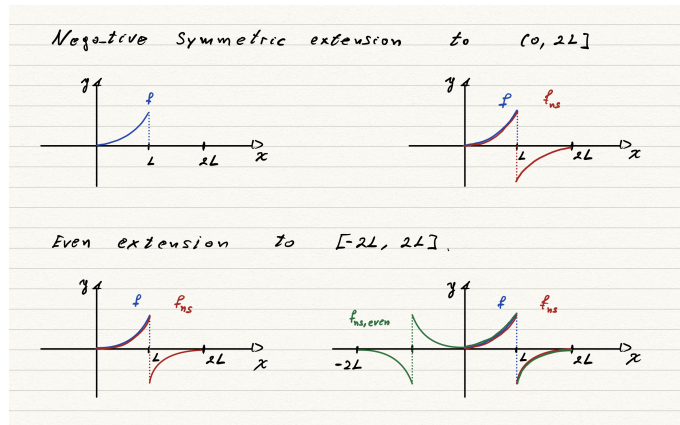 Negative Symmetric extension to (0, 2L]
y
f
L
2L
x
y
f
f_ns
L
2L
x
Even extension to [-2L, 2L].
y
f
f_ns
L
2L
x
y
f_ns,even
f
f_ns
-2L
L
2L
x